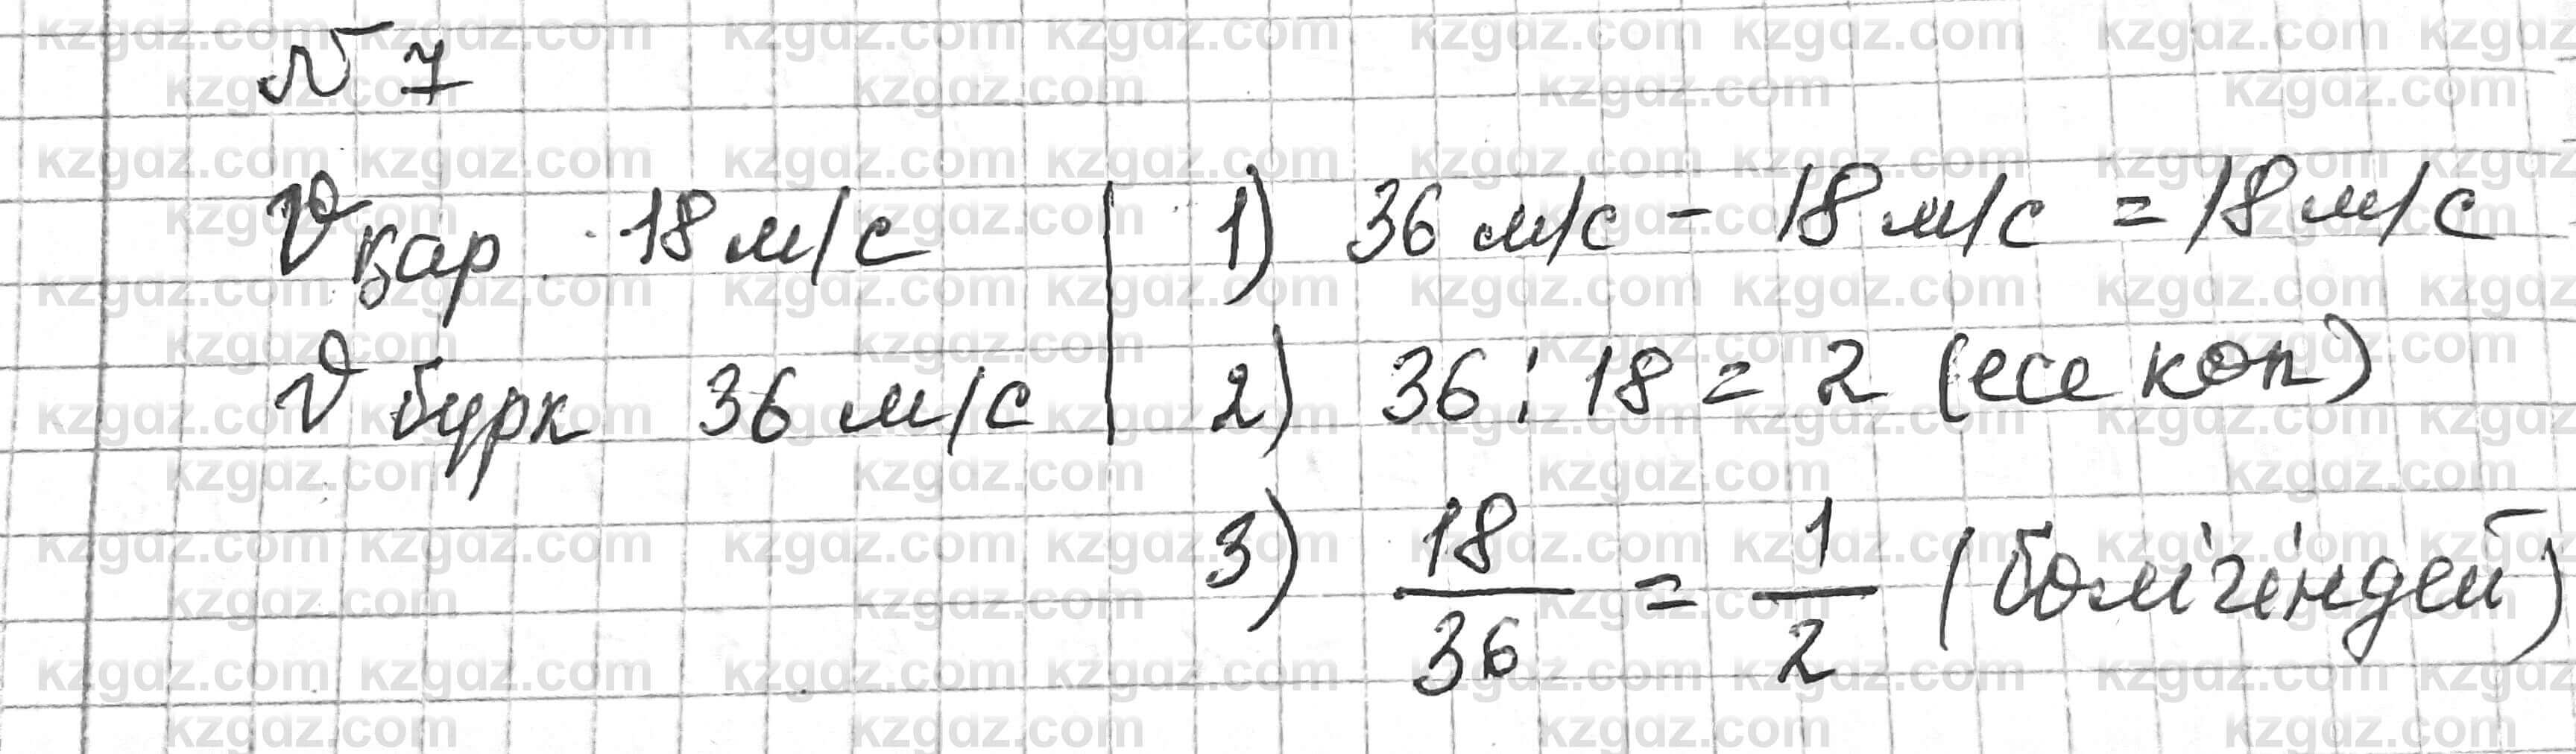 № 7
υ қар 18 м/с
υ бурк 36 м/с
1) 36 м/с - 18 м/с = 18 м/с
2) 36 : 18 = 2 (есе көп)
3) 18/36 = 1/2 (бөлігіндей)
kzgdz.com